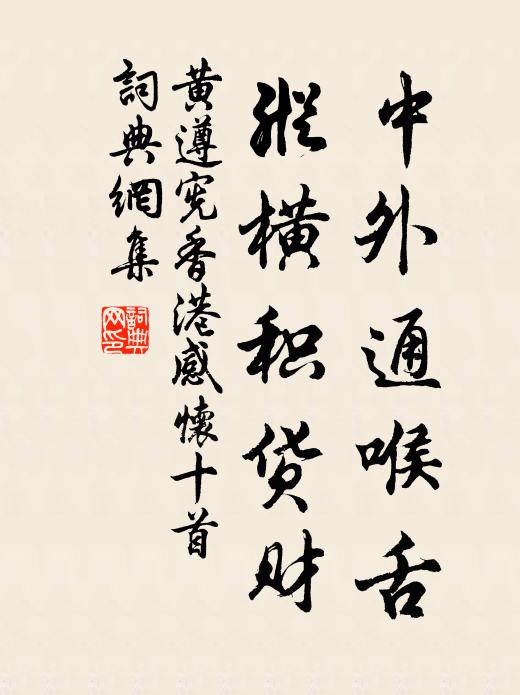 中外通喉舌
縱橫积货财
黄遵宪香港感懷十首
詞典網集
詞典网印